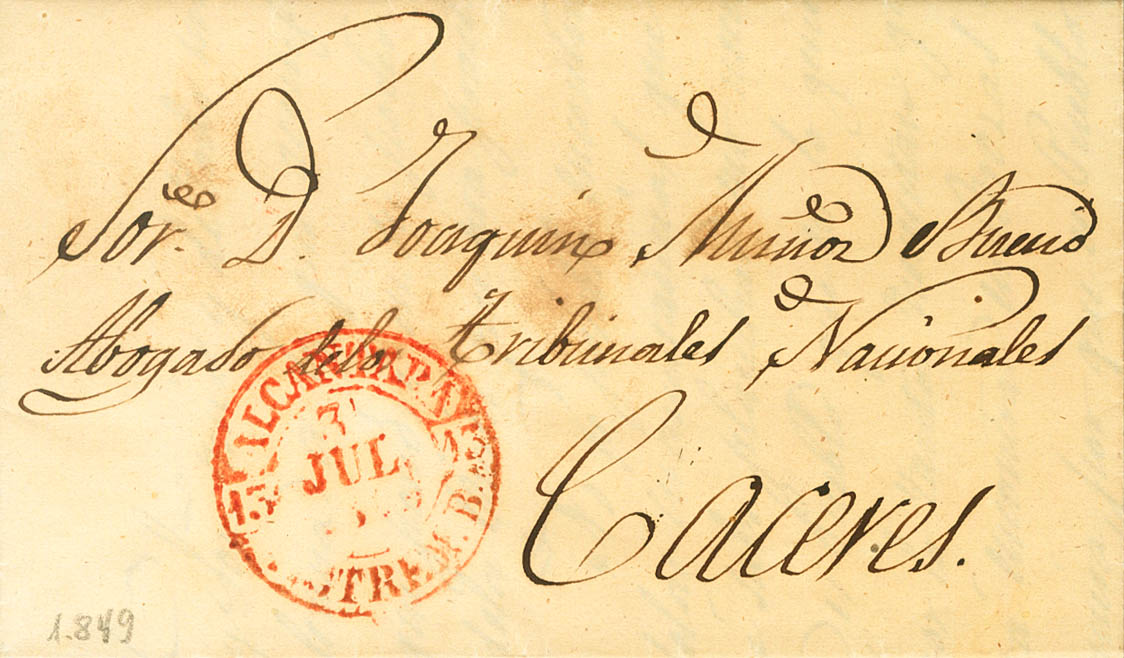 Sor. D. Joaquin Muñoz Bueno
Abogado delos Tribunales Nacionales
Caceres.
ALCANTARA
13
JUL
ESTREM. B.
1.849